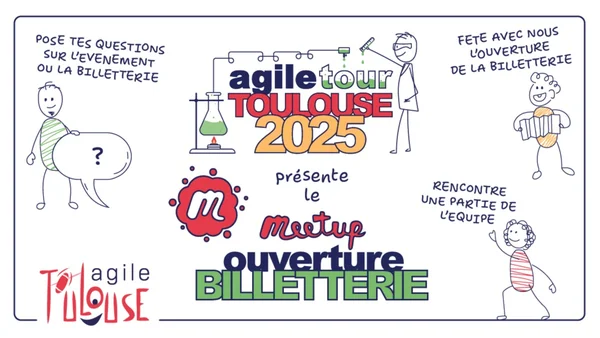 POSE TES QUESTIONS
SUR L'EVENEMENT
OU LA BILLETTERIE
?
agile tour
TOULOUSE
2025
FETE AVEC NOUS
L'OUVERTURE
DE LA BILLETTERIE
présente
le
m
meetup
ouverture
BILLETTERIE
RENCONTRE
UNE PARTIE DE
L'EQUIPE
agile
TOULOUSE